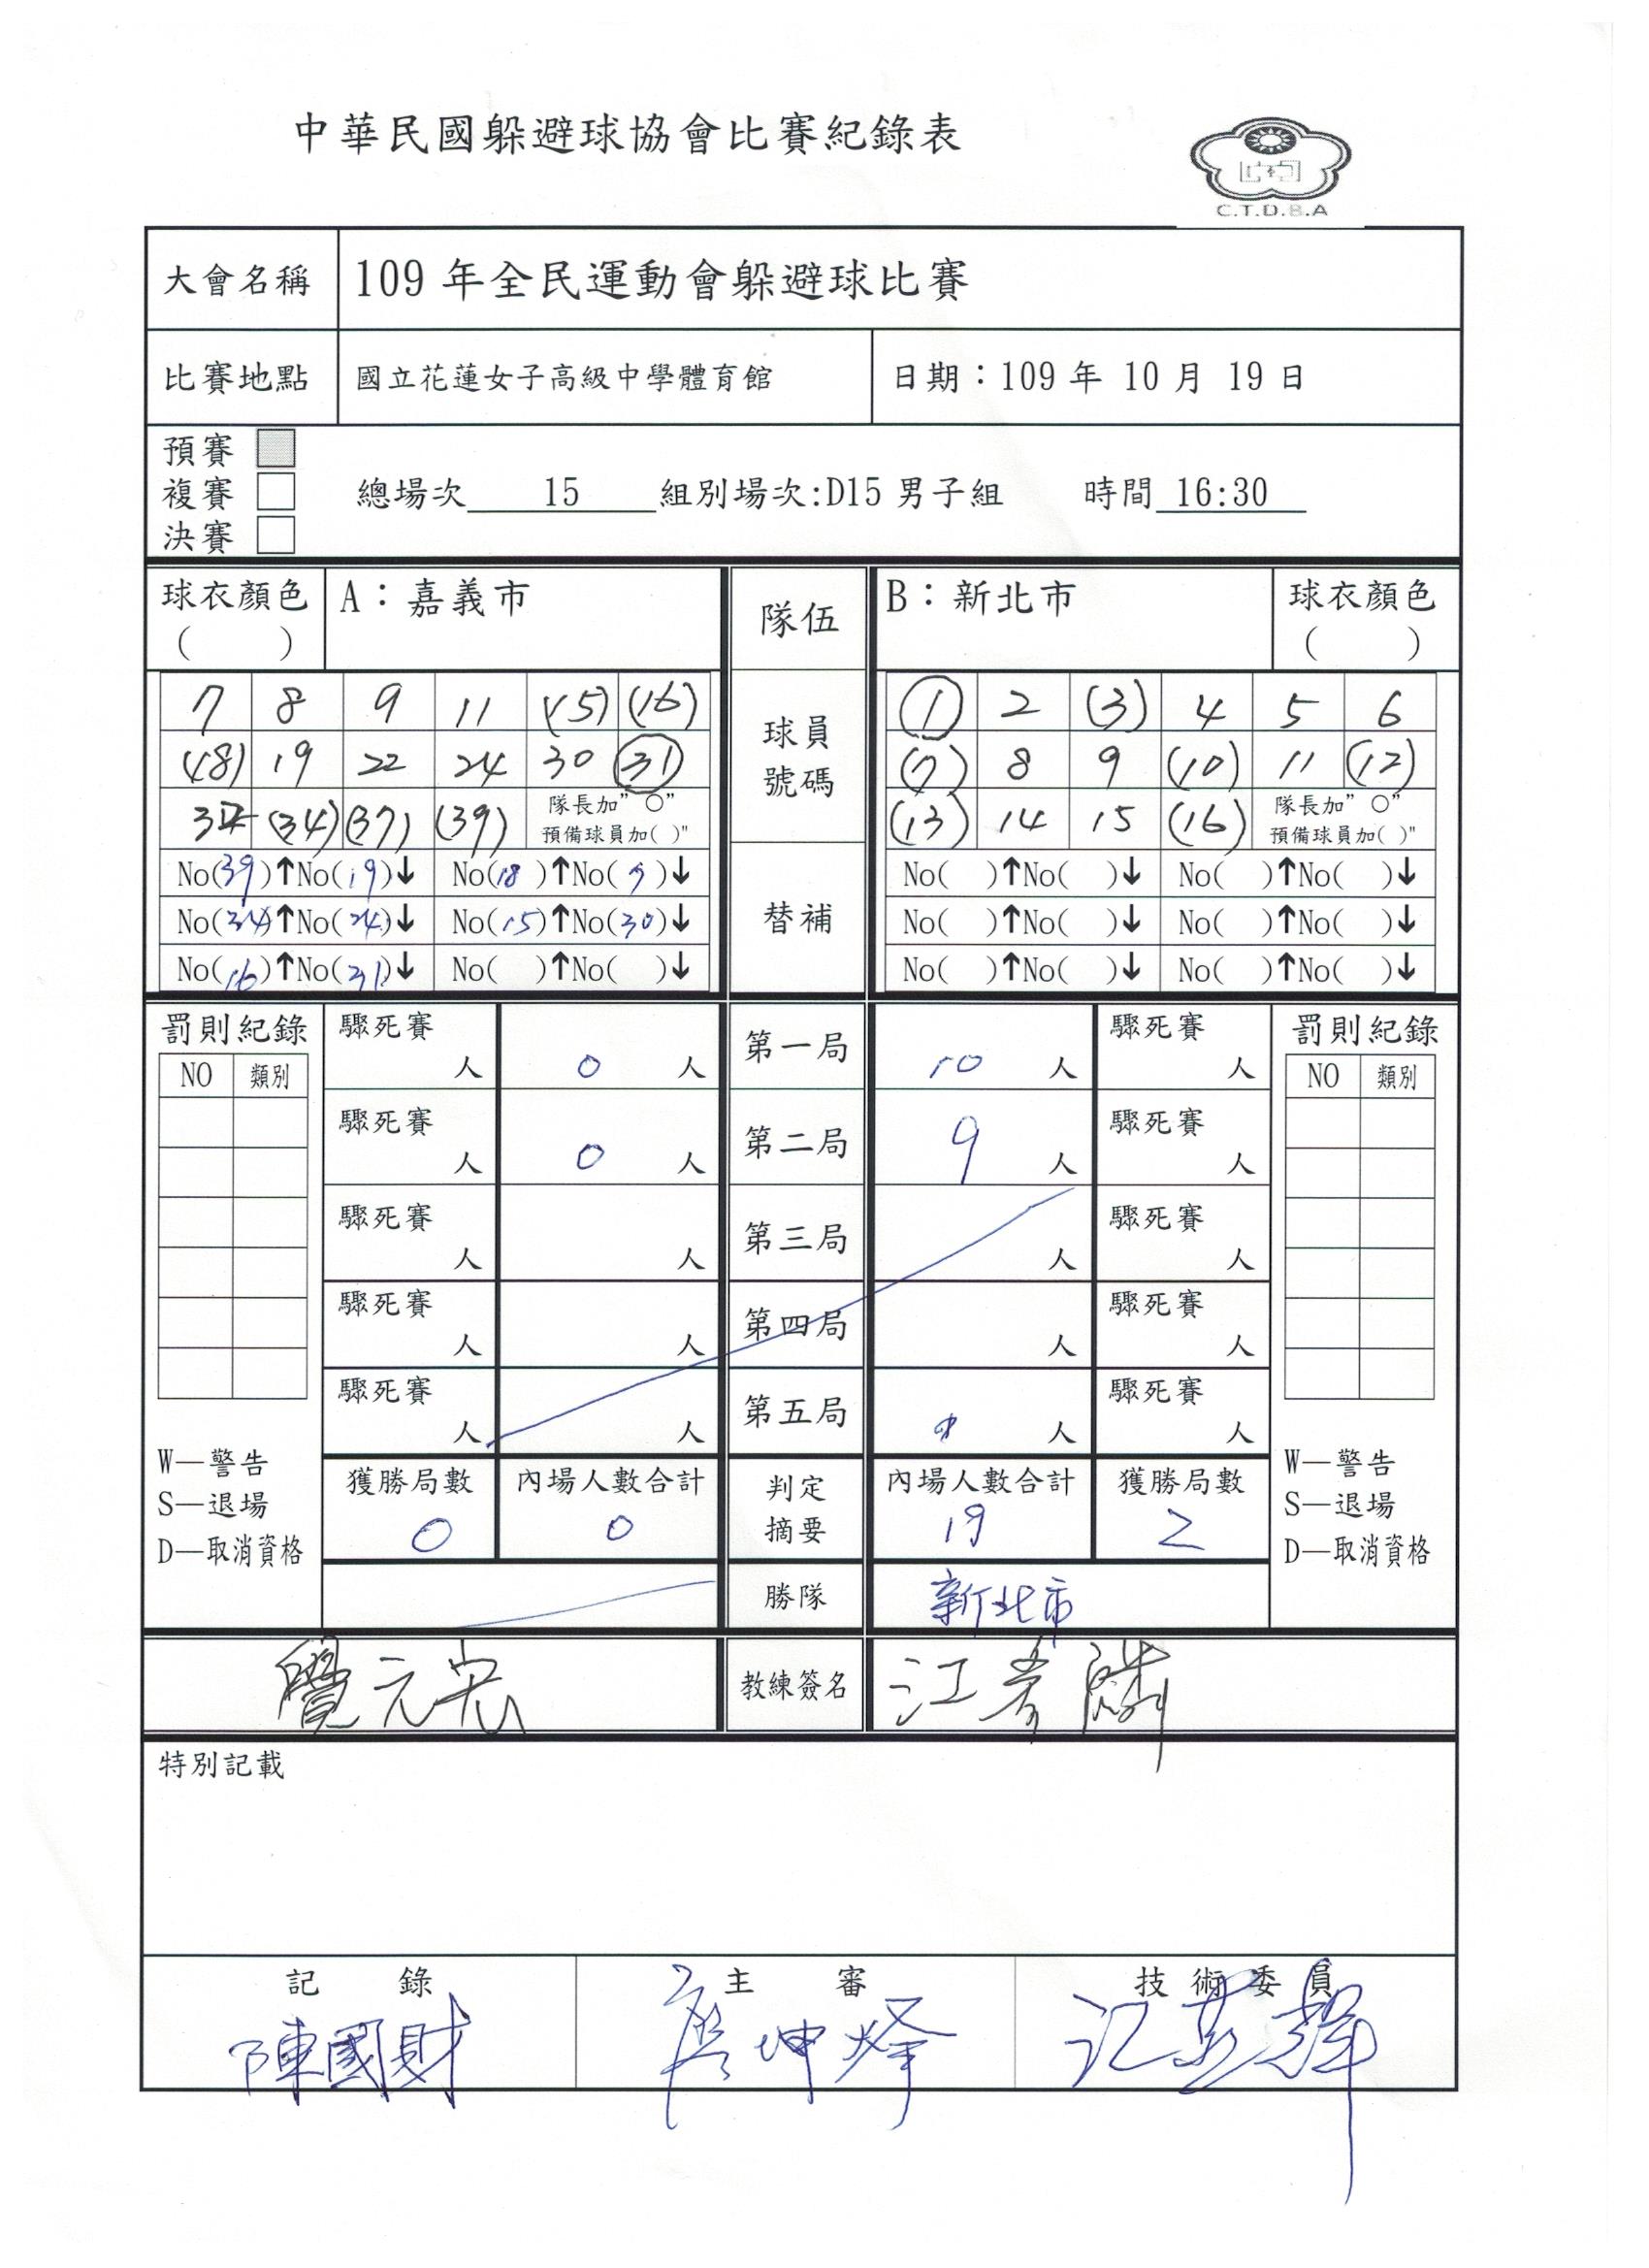 中華民國躲避球協會比賽紀錄表
C.T.D.B.A
大會名稱 109 年全民運動會躲避球比賽
比賽地點 國立花蓮女子高級中學體育館 日期：109 年 10 月 19 日
預賽
複賽 總場次 15 組別場次:D15 男子組 時間 16:30
決賽
球衣顏色 A：嘉義市 隊伍 B：新北市 球衣顏色
( ) ( )
7 8 9 11 (15) (16) 球員 1 2 (3) 4 5 6
(18) 19 22 24 30 (31) 號碼 (7) 8 9 (10) 11 (12)
(34) (37) (39) 隊長加"○" (13) 14 15 (16) 隊長加"○"
預備球員加( )" 預備球員加( )"
No(39)↑No(19)↓ No(18)↑No( )↓ No( )↑No( )↓ No( )↑No( )↓
No(34)↑No(24)↓ No(15)↑No(30)↓ 替補 No( )↑No( )↓ No( )↑No( )↓
No(16)↑No(31)↓ No( )↑No( )↓ No( )↑No( )↓ No( )↑No( )↓
罰則紀錄 驟死賽 人 0 人 第一局 10 人 驟死賽 人 罰則紀錄
NO 類別 NO 類別
驟死賽 人 0 人 第二局 9 人 驟死賽 人
驟死賽 人 人 第三局 人 驟死賽 人
驟死賽 人 人 第四局 人 驟死賽 人
驟死賽 人 人 第五局 人 驟死賽 人
W—警告 獲勝局數 內場人數合計 判定 內場人數合計 獲勝局數 W—警告
S—退場 0 0 摘要 19 2 S—退場
D—取消資格 D—取消資格
勝隊 新北市
教練簽名
特別記載
記 錄 主 審 技 術 委 員
陳國財